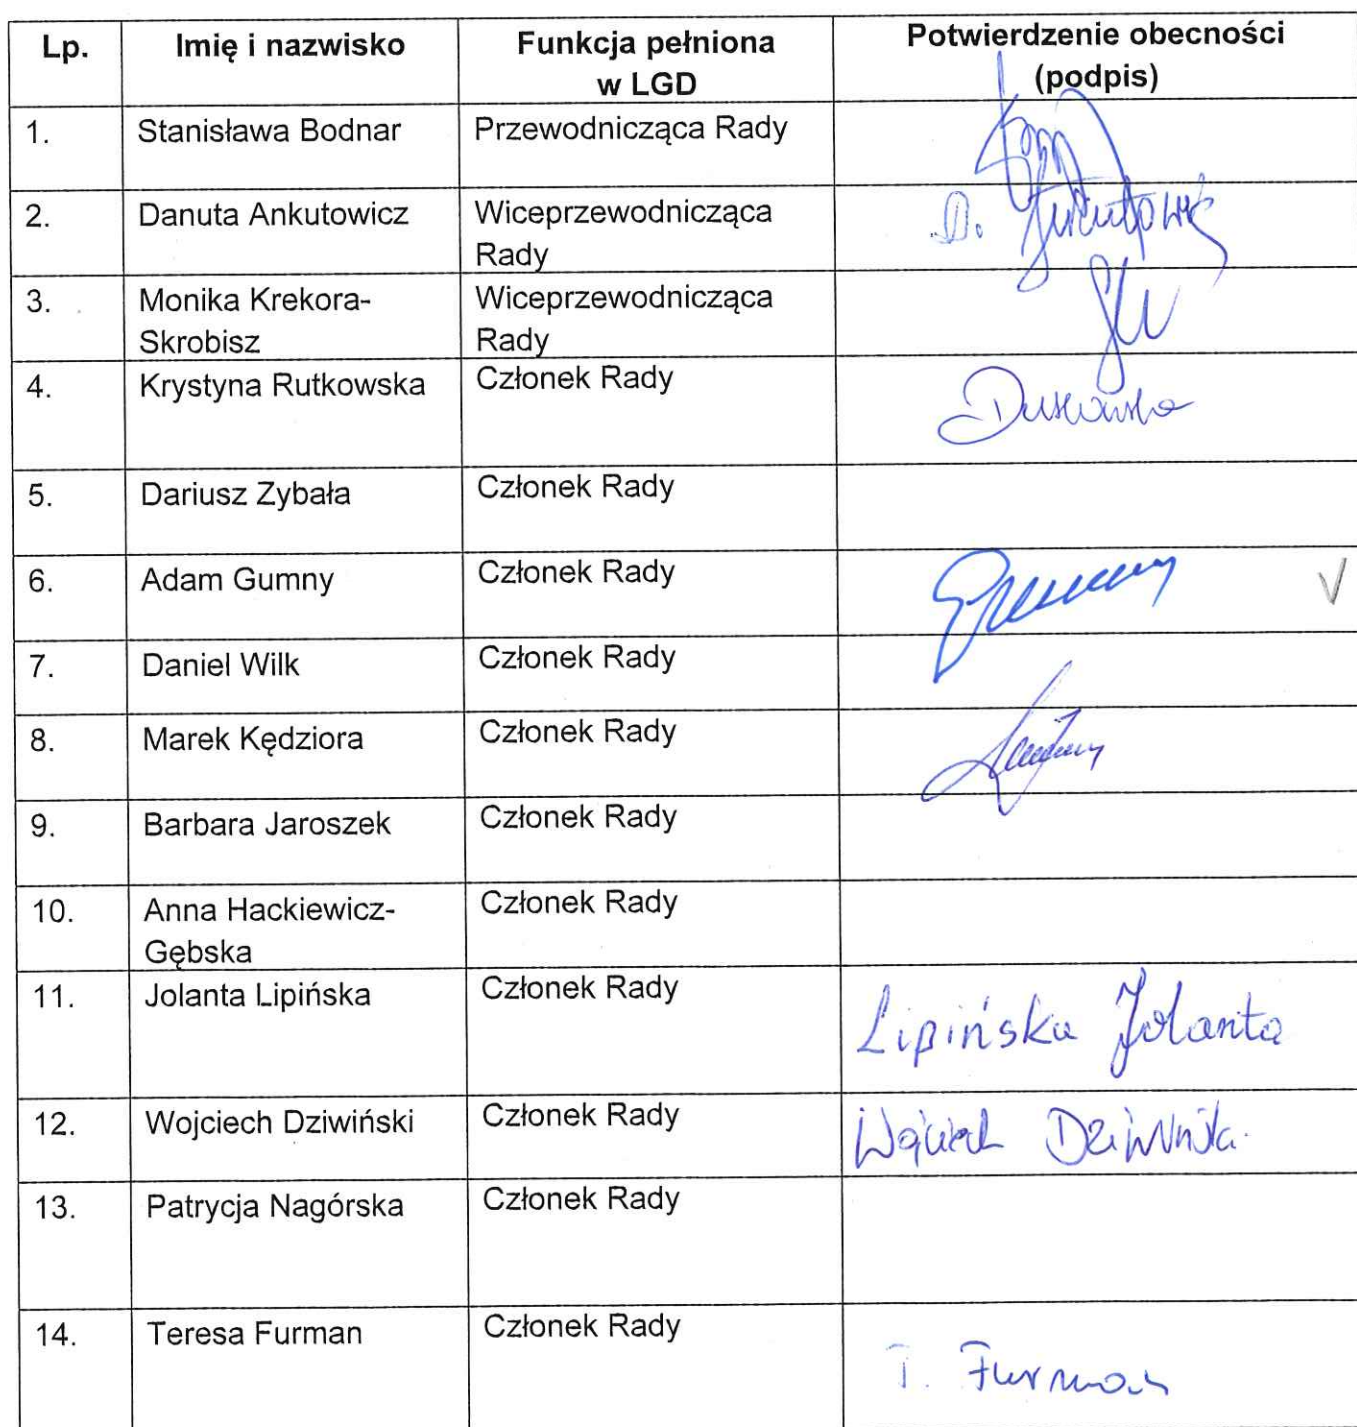 Lp. Imię i nazwisko Funkcja pełniona w LGD Potwierdzenie obecności (podpis)
1. Stanisława Bodnar Przewodnicząca Rady
2. Danuta Ankutowicz Wiceprzewodnicząca Rady D.
3. Monika Krekora-Skrobisz Wiceprzewodnicząca Rady
4. Krystyna Rutkowska Członek Rady
5. Dariusz Zybała Członek Rady
6. Adam Gumny Członek Rady V
7. Daniel Wilk Członek Rady
8. Marek Kędziora Członek Rady
9. Barbara Jaroszek Członek Rady
10. Anna Hackiewicz-Gębska Członek Rady
11. Jolanta Lipińska Członek Rady Lipińska Jolanta
12. Wojciech Dziwiński Członek Rady Wojciech
13. Patrycja Nagórska Członek Rady
14. Teresa Furman Członek Rady T. Furman